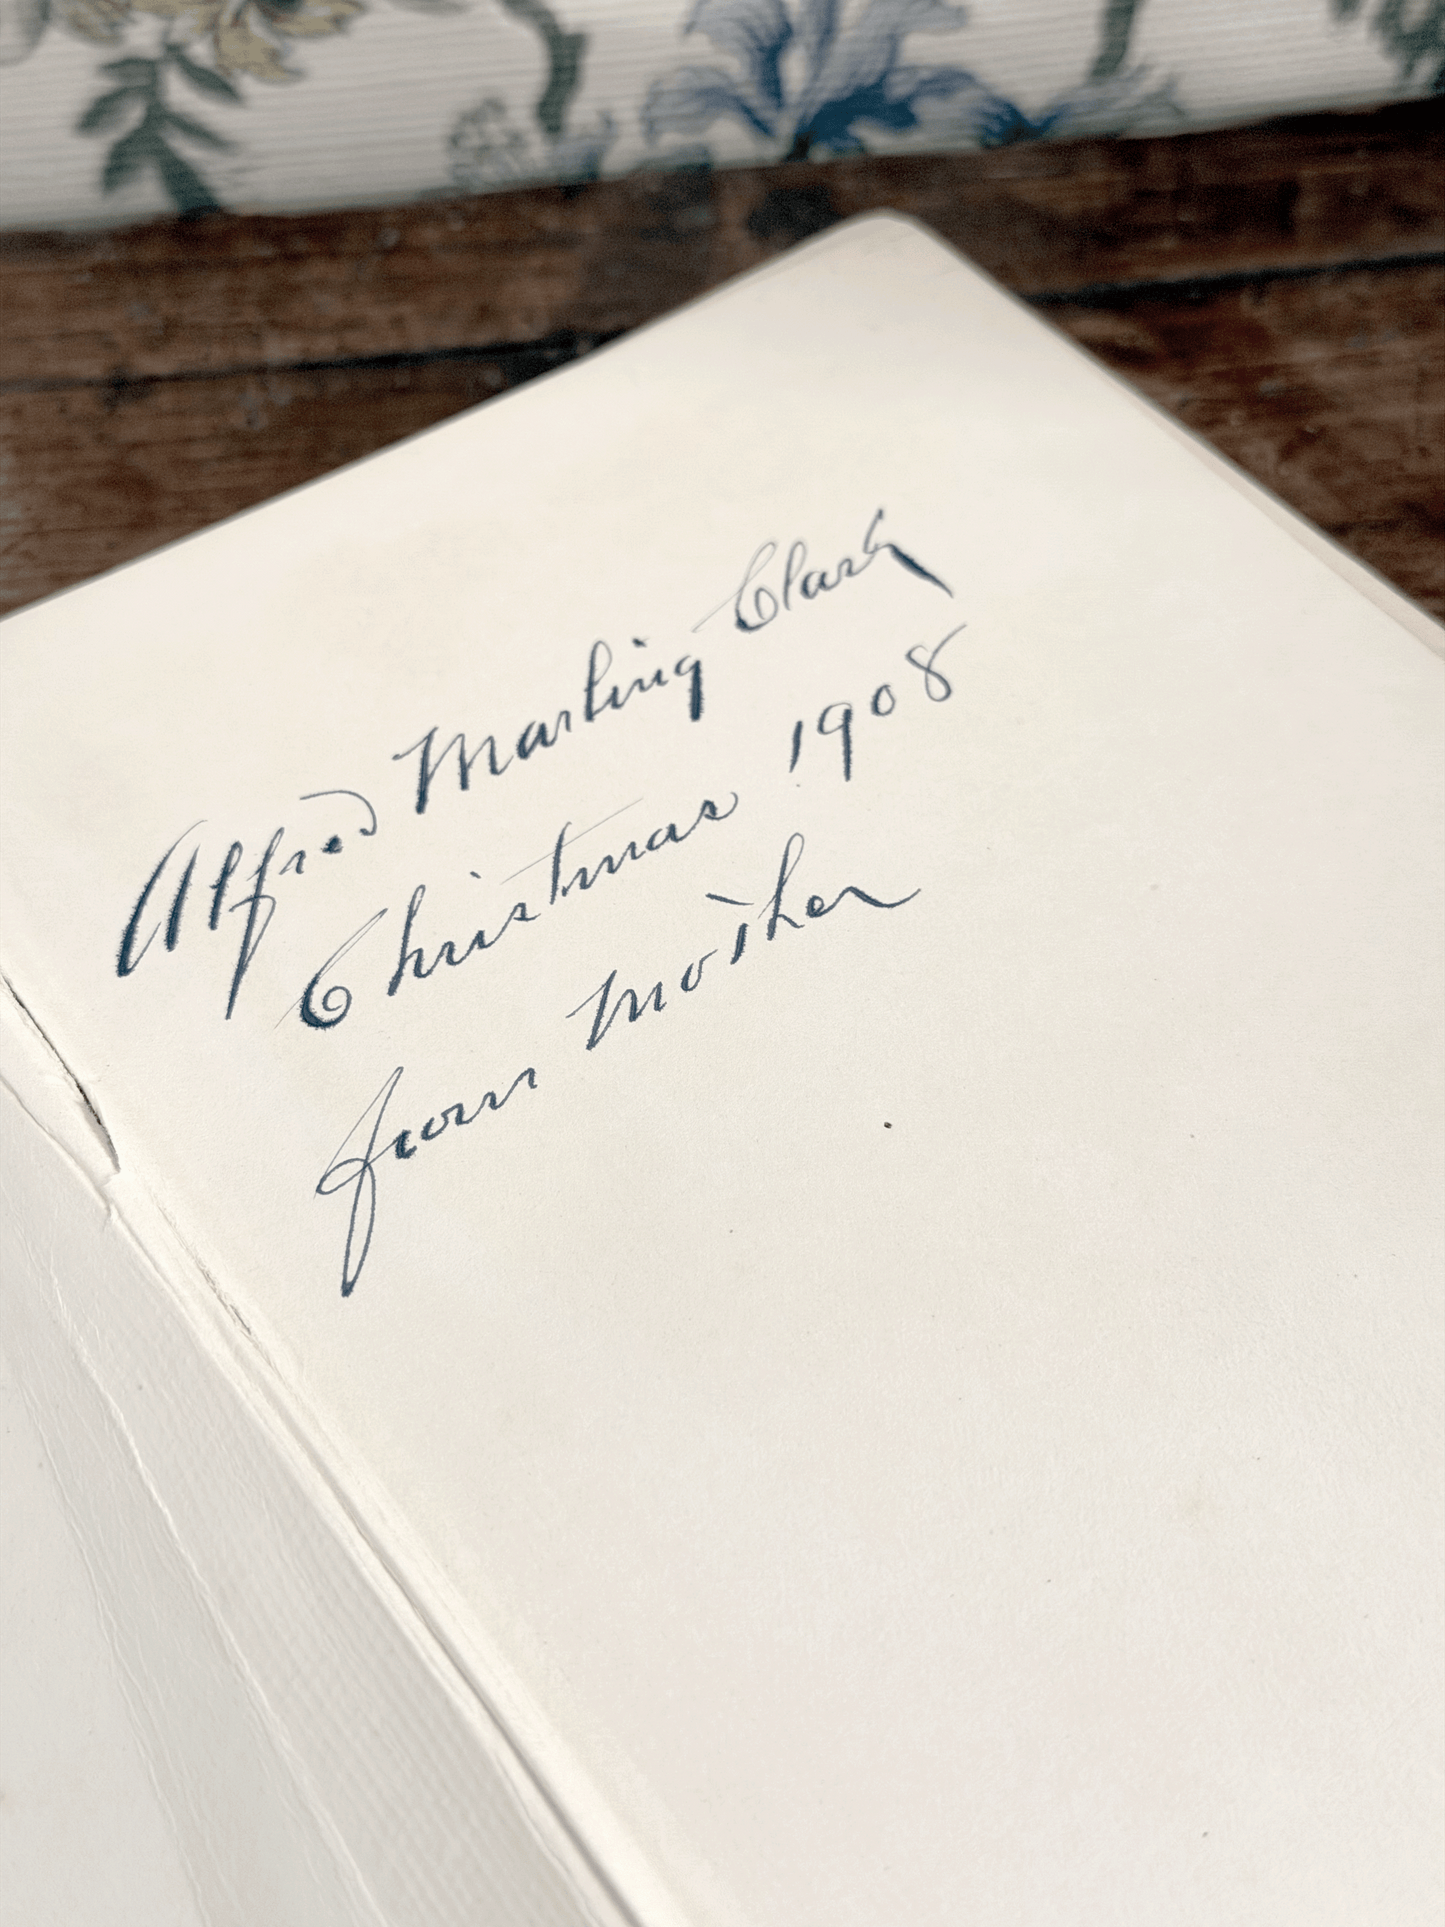 Alfred Marling Clark
Christmas 1908
from Mother